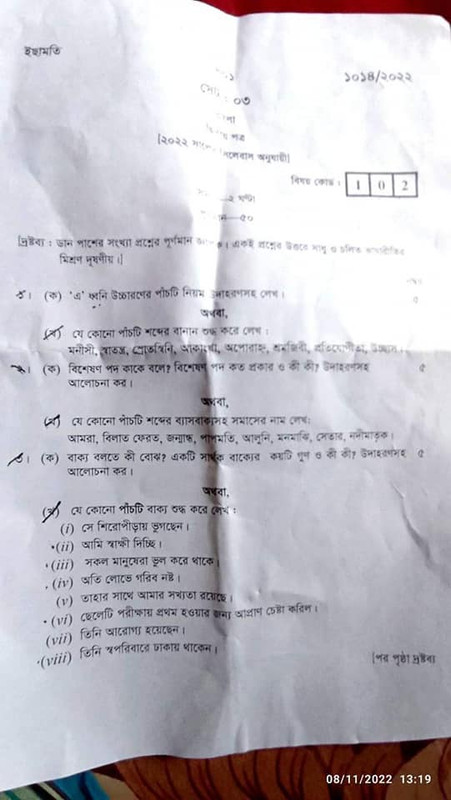 ইছামতি
১০১৪/২০২২
০৩
পত্র
[২০২২ সিলেবাস অনুযায়ী]
বিষয় কোড : 1 0 2
২ ঘণ্টা
৫০
[দ্রষ্টব্য : ডান পাশের সংখ্যা প্রশ্নের পূর্ণমান । একই প্রশ্নের উত্তরে সাধু ও চলিত ভাষারীতির
মিশ্রণ দূষণীয়।]
১। (ক) 'এ' ধ্বনি উচ্চারণের পাঁচটি নিয়ম উদাহরণসহ লেখ। ৫
অথবা,
(খ) যে কোনো পাঁচটি শব্দের বানান শুদ্ধ করে লেখ :
মনীসী, স্বাতন্ত্র, স্রোতস্বিনি, আকাংখা, অপোরাহ্ন, শ্রমজিবী, প্রতিযোগীতা, উচ্ছাস।
২। (ক) বিশেষণ পদ কাকে বলে? বিশেষণ পদ কত প্রকার ও কী কী? উদাহরণসহ ৫
আলোচনা কর।
অথবা,
(খ) যে কোনো পাঁচটি শব্দের ব্যাসবাক্যসহ সমাসের নাম লেখ:
আমরা, বিলাত ফেরত, জন্মান্ধ, পাপমতি, আলুনি, মনমাঝি, সেতার, নদীমাতৃক।
৩। (ক) বাক্য বলতে কী বোঝ? একটি সার্থক বাক্যের কয়টি গুণ ও কী কী? উদাহরণসহ ৫
আলোচনা কর।
অথবা,
(খ) যে কোনো পাঁচটি বাক্য শুদ্ধ করে লেখ :
(i) সে শিরোপীড়ায় ভুগছেন।
(ii) আমি স্বাক্ষী দিচ্ছি।
(iii) সকল মানুষেরা ভুল করে থাকে।
(iv) অতি লোভে গরিব নষ্ট।
(v) তাহার সাথে আমার সখ্যতা রয়েছে।
(vi) ছেলেটি পরীক্ষায় প্রথম হওয়ার জন্য আপ্রাণ চেষ্টা করিল।
(vii) তিনি আরোগ্য হয়েছেন।
(viii) তিনি স্বপরিবারে ঢাকায় থাকেন।
[পর পৃষ্ঠা দ্রষ্টব্য
08/11/2022 13:19